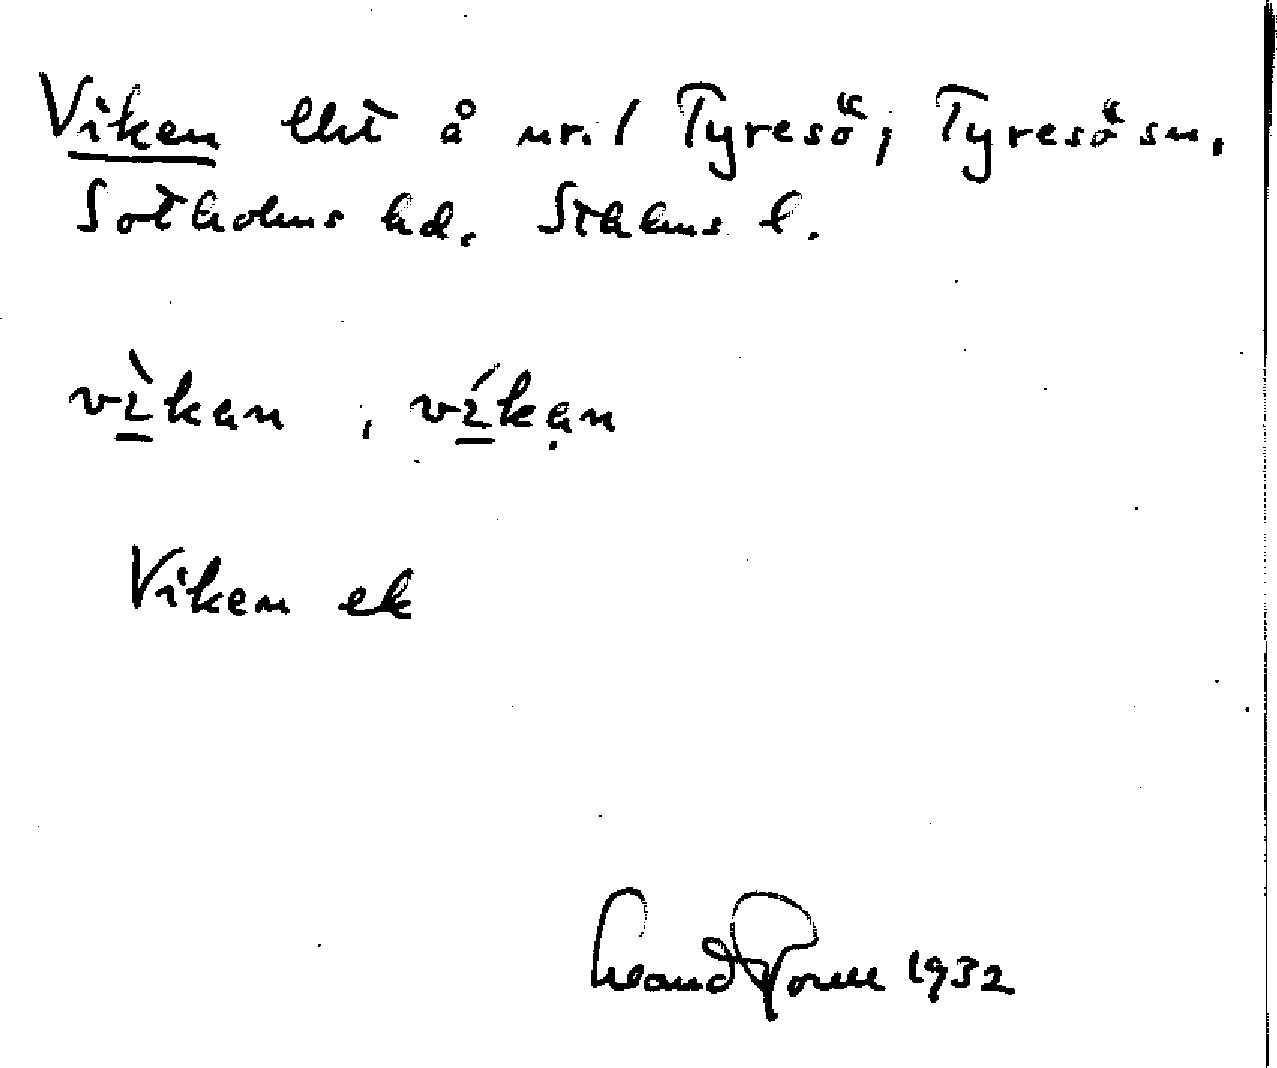 Viken lht å nr. 1 Tyresö, Tyresö sn.
Sotholms hd. Sthlms l.
vìkan, víkạn
Viken ek
1932